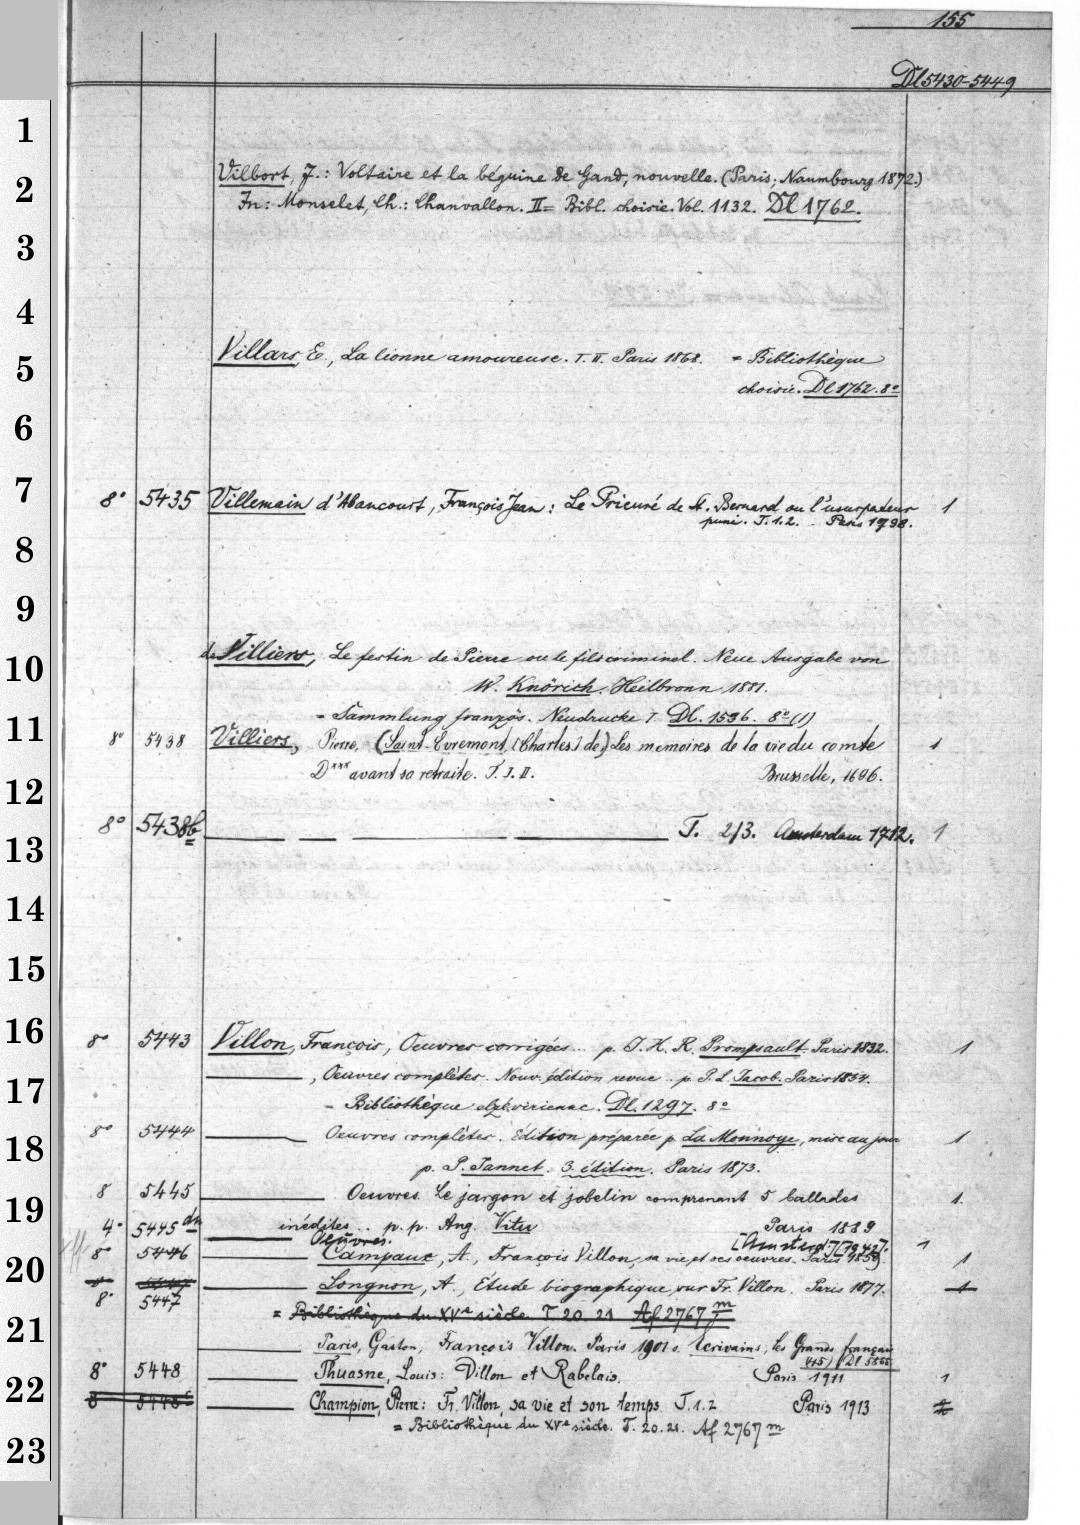 155
Dl 5430-5449
1
Vilbort, J.: Voltaire et la béguine de Gand, nouvelle. (Paris; Naumbourg 1872.)
2
In: Monselet, Ch.: Chanvallon. II = Bibl. choisie. Vol. 1132. Dl 1762.
3
4
Villars, E., La lionne amoureuse. T. II. Paris 1868. = Bibliothèque
5
choisie. Dl 1762. 8º
6
7
8º 5435 Villemain d'Abancourt, François Jean: Le Prieuré de St. Bernard ou l'usurpateur 1
puni. T. 1. 2. Paris 1798.
8
9
de Villiers, Le festin de Pierre ou le fils criminel. Neue Ausgabe von
10
W. Knörich. Heilbronn 1881.
= Sammlung französ. Neudrucke 1. Dl. 1596. 8º (1)
11
8º 5438 Villiers, Pierre, (Saint-Evremont, [Charles] de,) Les mémoires de la vie du comte 1
D*** avant sa retraite. T. I. II. Brusselle, 1696.
12
8º 5438b T. 2/3. Amsterdam 1712. 1
13
14
15
16
8º 5443 Villon, François, Oeuvres corrigées... p. J. H. R. Prompsault Paris 1832. 1
17
, Oeuvres complètes. Nouv. édition revue.. p. P. L. Jacob. Paris 1854.
= Bibliothèque elzévirienne. Dl. 1297. 8º
18
8º 5444 Oeuvres complètes. Edition préparée p. La Monnoye, mise au jour 1
p. P. Jannet. 3. édition. Paris 1873.
19
8 5445 Oeuvres. Le jargon et jobelin comprenant 5 ballades 1.
inédites.. p. p. Aug. Vitu Paris 1889
4º 5445 Oeuvres. [Amsterd.] [1942]. 1
20
8º 5446 Campaux, A., François Villon, sa vie et ses oeuvres. Paris 1859. 1
8º 5447 Longnon, A., Etude biographique sur Fr. Villon. Paris 1877. 1
8º 5447
21
= Bibliothèque du XVe siècle. T 20. 21 Af 2767 m
Paris, Gaston, François Villon. Paris 1901. Écrivains, les Grands français
(45) Dl 5566
22
8º 5448 Thuasne, Louis: Villon et Rabelais. Paris 1911 1
8 5448 Champion, Pierre: Fr. Villon, sa vie et son temps T. 1. 2 Paris 1913
= Bibliothèque du XVe siècle. T. 20. 21. Af 2767 m
23